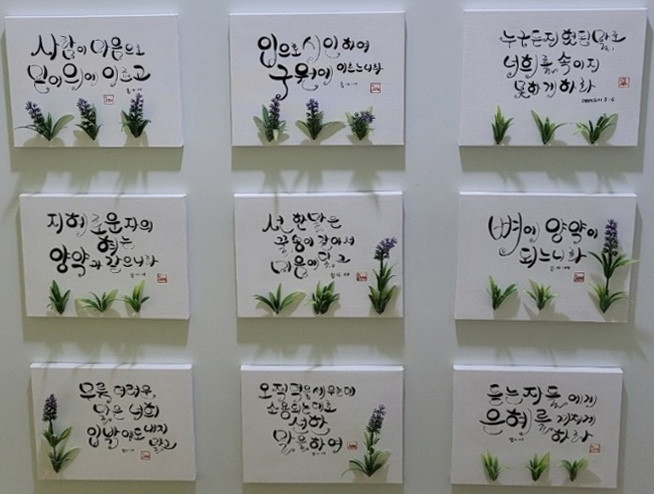 사람이 마음으로
믿어 의에 이르고
입으로 시인하여
구원에 이르느니라
누구든지 헛된 말로
너희를 속이지
못하게 하라
지혜로운 자의
혀는
양약과 같으니라
선한 말은
꿀송이 같아서
마음에 달고
뼈에 양약이
되느니라
무릇 더러운
말은 너희
입 밖에도 내지
말고
오직 덕을 세우는데
소용되는대로
선한
말을 하여
듣는 자들에게
은혜를 끼치게
하라